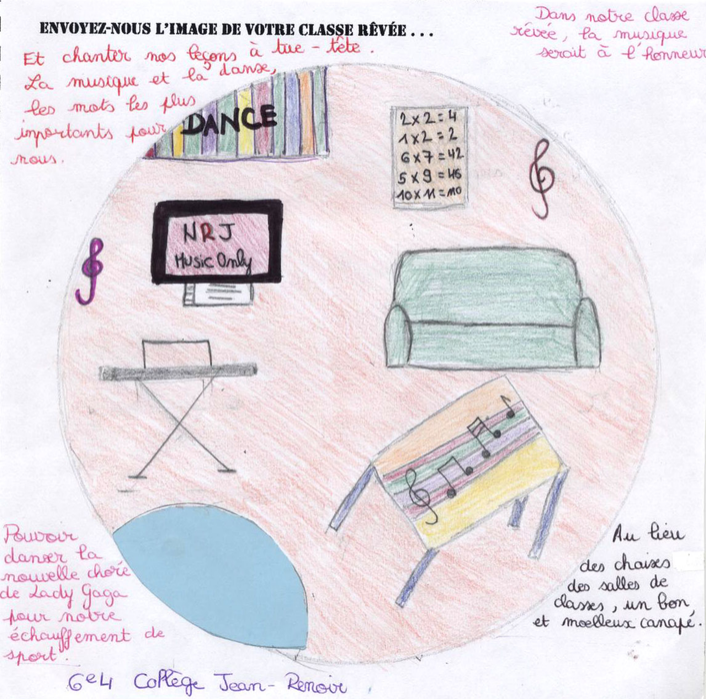 ENVOYEZ-NOUS L'IMAGE DE VOTRE CLASSE RÊVÉE . . .
Dans notre classe
rêvée, la musique
serait à l'honneur
Et chanter nos leçons à tue-tête.
La musique et la danse,
les mots les plus
importants pour
nous.
DANCE
2 x 2 = 4
1 x 2 = 2
6 x 7 = 42
5 x 9 = 45
10 x 11 = 110
NRJ
Music Only
Pouvoir
danser la
nouvelle choré
de Lady Gaga
pour notre
échauffement de
sport.
Au lieu
des chaises
des salles de
classes, un bon
et moelleux canapé.
6e4 Collège Jean-Renoir